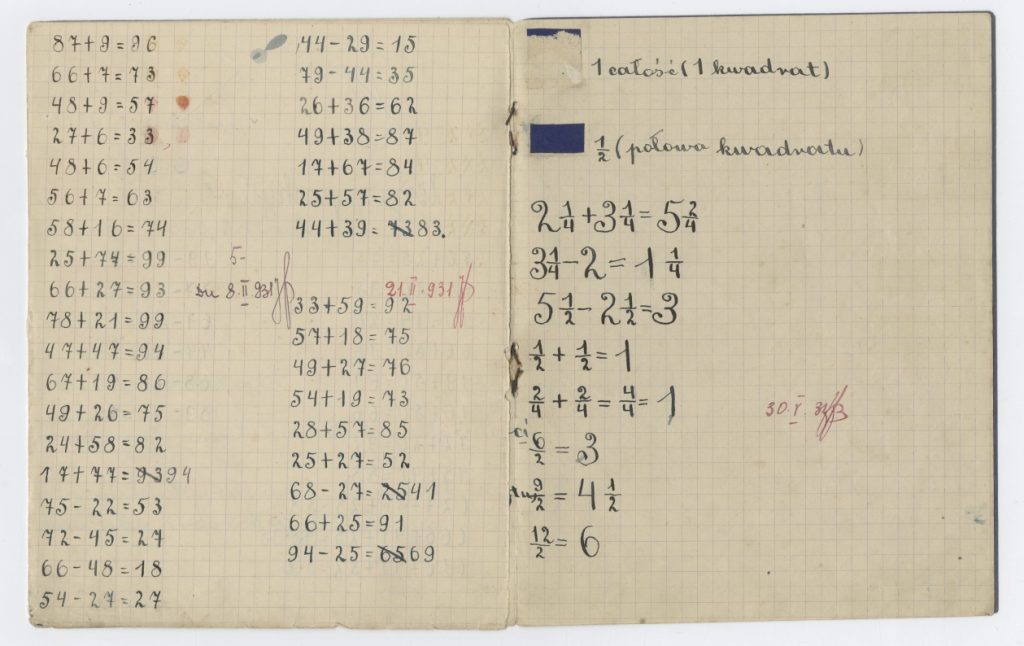 87+9=96
66+7=73
48+9=57
27+6=33
48+6=54
56+7=63
58+16=74
25+74=99
5-
66+27=93
Dn 8.II 931
78+21=99
47+47=94
67+19=86
49+26=75
24+58=82
17+77=9394
75-22=53
72-45=27
66-48=18
54-27=27
44-29=15
79-44=35
26+36=62
49+38=87
17+67=84
25+57=82
44+39=7383.
21.II.931
33+59=92
57+18=75
49+27=76
54+19=73
28+57=85
25+27=52
68-27=2541
66+25=91
94-25=6569
1 całość (1 kwadrat)
1/2 (połowa kwadratu)
2 1/4 + 3 1/4 = 5 2/4
3 1/4 - 2 = 1 1/4
5 1/2 - 2 1/2 = 3
1/2 + 1/2 = 1
2/4 + 2/4 = 4/4 = 1
6/2 = 3
9/2 = 4 1/2
12/2 = 6